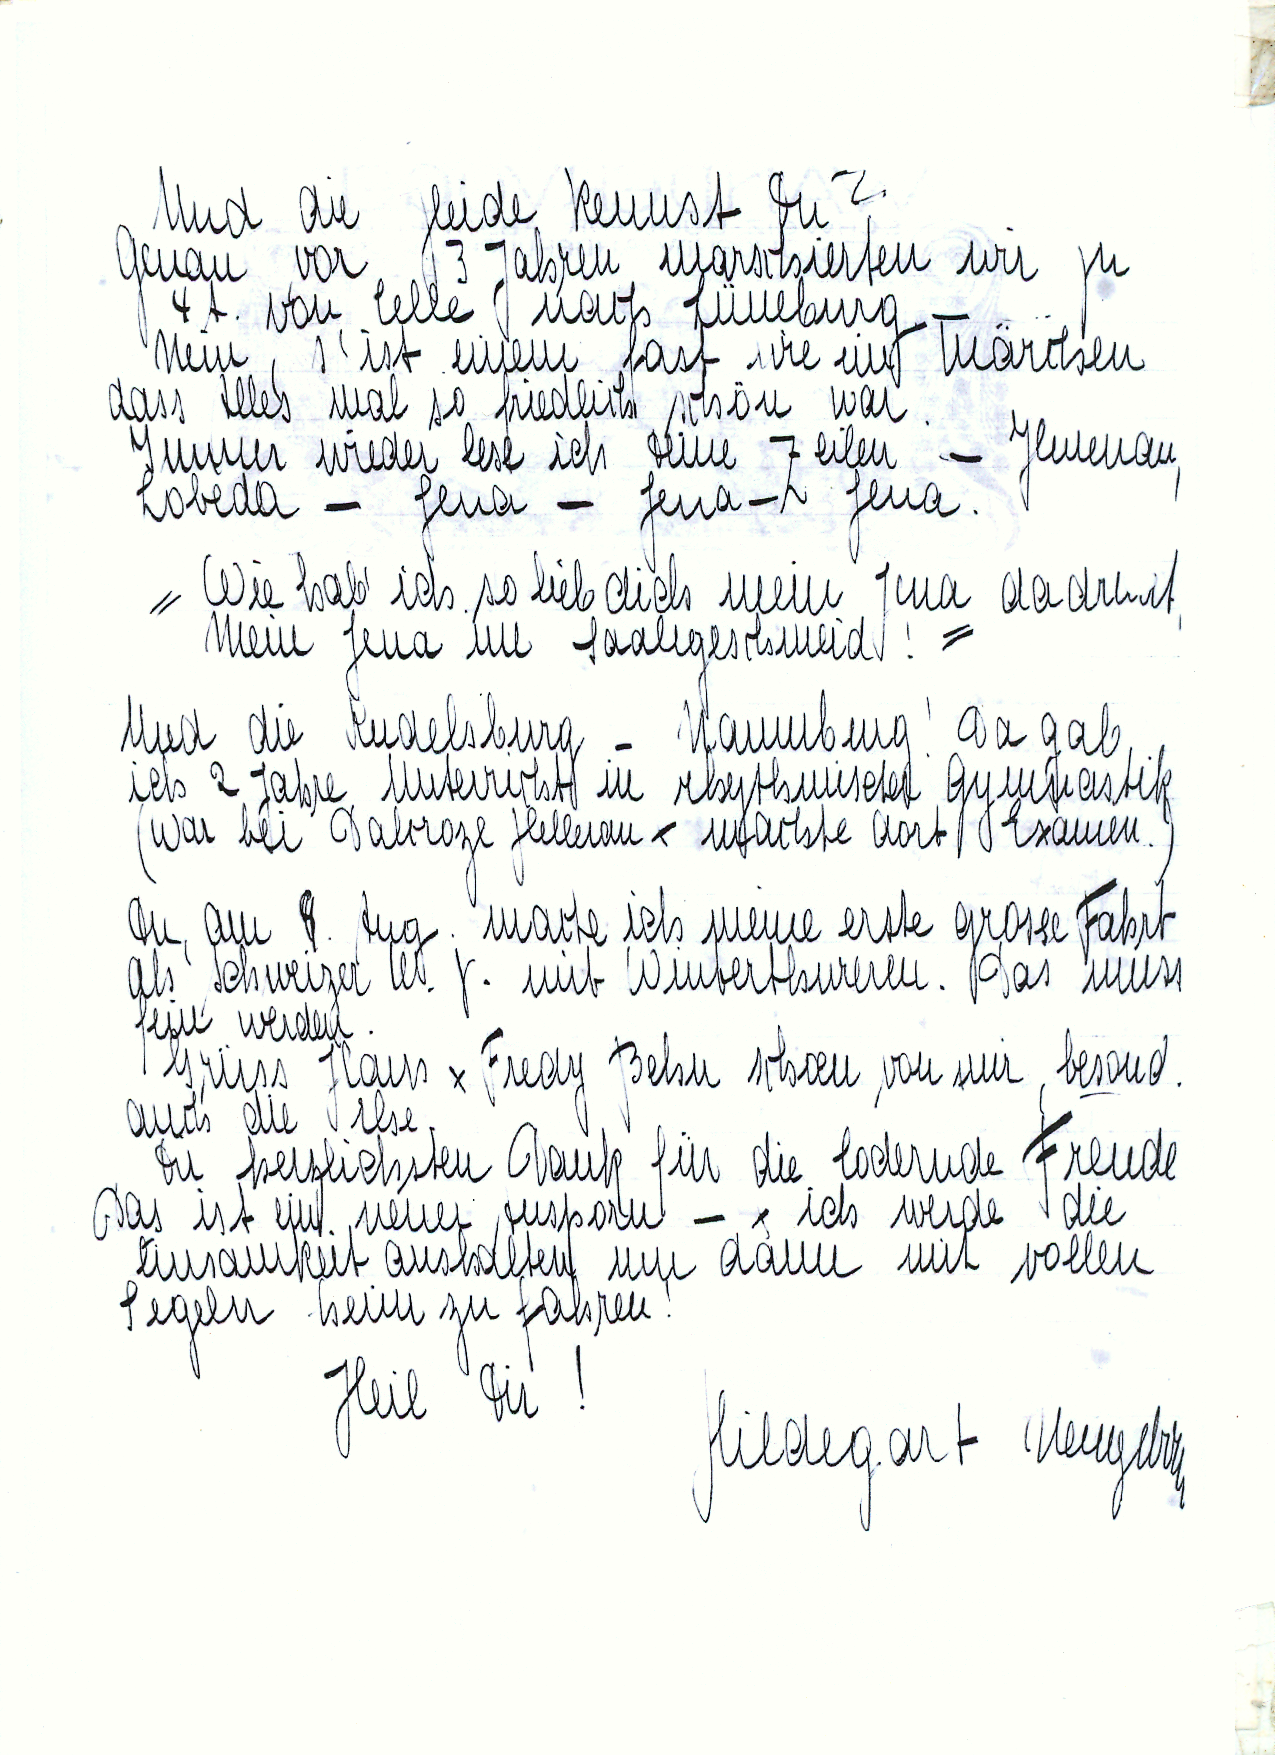 Und die Heide kennst Du?
Genau vor 3 Jahren marschierten wir zu
4 t. von Celle nach Lüneburg
Nein, s'ist einem fast wie ein Märchen
dass Alles mal so friedlich schön war.
Immer wieder lese ich Deine Zeilen – Ilmenau,
Lobeda – Jena – Jena – Jena.
"Wie hab' ich so lieb dich mein Jena
Mein Jena im Saalegeschmeid! "
Und die Rudelsburg – Naumburg! Da gab
ich 2 Jahre Unterricht in rhythmischer Gymnastik
(War bei Dalcroze Hellerau + machte dort Examen.)
Du, am 8. Aug. mache ich meine erste grosse Fahrt
als Schweizer W. V. mit Winterthurern. Das muss
fein werden.
Grüss Hans + Fredy Behn schoen von mir, besond.
auch die Ilse.
Du herzlichsten Dank für die lodernde Freude
Das ist ein neuer Ansporn – + ich werde die
Einsamkeit aushalten um dann mit vollen
Segeln heim zu fahren!
Heil Dir!
Hildegart